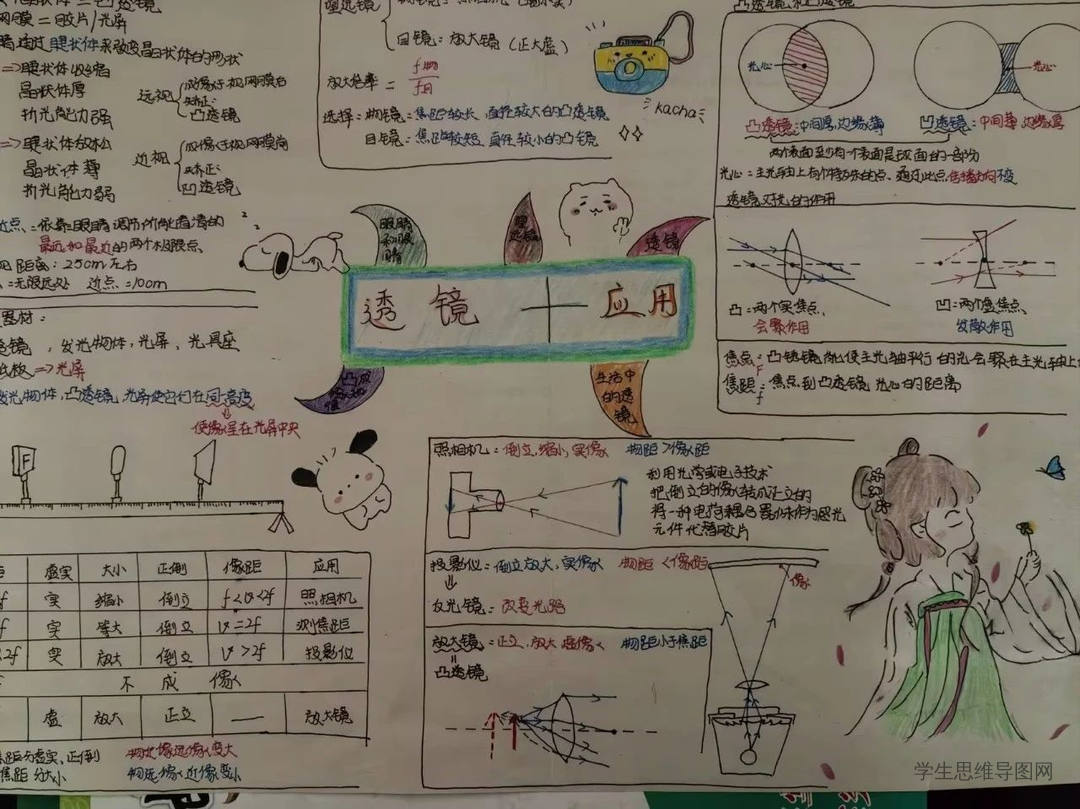 视网膜=胶片/光屏
眼睛通过睫状体来改变晶状体的形状
=>睫状体收缩
晶状体厚
折光能力强
远视
成像于视网膜后
矫正:
凸透镜
=>睫状体放松
晶状体薄
折光能力弱
近视
成像于视网膜前
矫正:
凹透镜
近点:依靠眼睛调节所能看清的
最远和最近的两个极限点
距离:25cm左右
:无限远处 近点:10cm
器材:
透镜,发光物体,光屏、光具座
=>光屏
发光物体,凸透镜,光屏
在同一高度
使像呈在光屏中央
F
虚实 大小 正倒 像距 应用
实 缩小 倒立 f<v<2f 照相机
实 等大 倒立 v=2f 测焦距
实 放大 倒立 v>2f 投影仪
不成像
虚 放大 正立 — 放大镜
焦距分虚实,正倒
焦距分大小
物近像远像变大
物远像近像变小
望远镜
目镜:放大镜(正大虚)
放大倍率=f物/f目
选择:物镜:焦距较长,直径较大的凸透镜
目镜:焦距较短,直径较小的凸透镜
kacha
眼睛和眼睛
透镜
透镜 + 应用
生活中的透镜
凸透镜和凹透镜
光心
光心
凸透镜:中间厚,边缘薄
凹透镜:中间薄,边缘厚
两个表面至少有一个表面是球面的一部分
光心:主光轴上有个特殊的点、通过此点传播方向不变
透镜对光的作用
凸:两个实焦点
会聚作用
凹:两个虚焦点
发散作用
焦点:凸透镜能使主光轴平行的光会聚在主光轴上
F
焦距:焦点到凸透镜光心的距离
f
照相机:倒立,缩小,实像 物距>像距
利用光学或电子技术
把倒立的像转成正立的
元件代替胶片
投影仪:倒立放大,实像 物距<像距
反光镜:改变光路
像
放大镜:正立,放大虚像 物距小于焦距
凸透镜
学生思维导图网